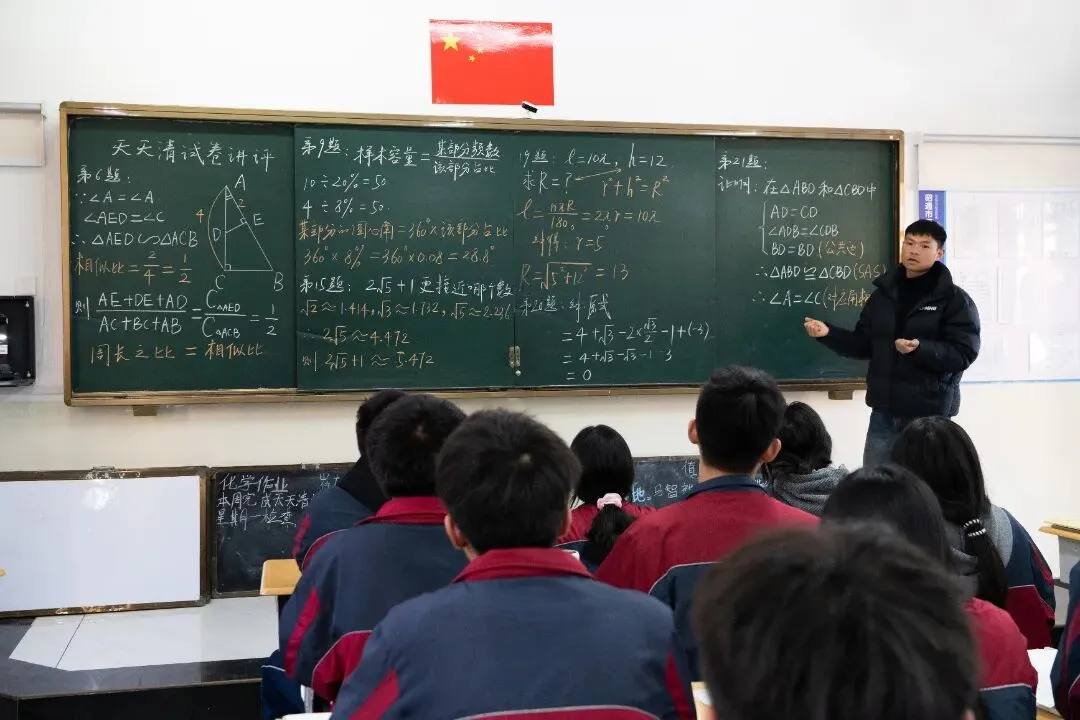 天天清试卷讲评
第6题：
∵∠A=∠A
∠AED=∠C
∴△AED∽△ACB
相似比=2/4=1/2
则 (AE+DE+AD)/(AC+BC+AB)=C△AED/C△ACB=1/2
周长之比=相似比
A
4
2
D
E
C
B
第9题：样本容量=某部分频数/该部分占比
10÷20%=50
4÷8%=50.
某部分的圆心角=360°×该部分占比
360°×8%=360°×0.08=28.8°
第15题：2√5+1更接近哪个数
√2≈1.414,√3≈1.732,√5≈2.236
∴2√5≈4.472
则2√5+1≈5.472
19题：l=10π，h=12
求R=?
r²+h²=R²
l=nπR/180=2πr=10π
解得：r=5
R=√(5²+12²)=13
第20题：解：原式
=4+√3-2×√3/2-1+(-3)
=4+√3-√3-1-3
=0
第21题：
证明：在△ABD和△CBD中
AD=CD
∠ADB=∠CDB
BD=BD(公共边)
∴△ABD≌△CBD(SAS)
∴∠A=∠C(对应角
昭通市
化学作业
本周完成天天清
星期一检查
值
地.